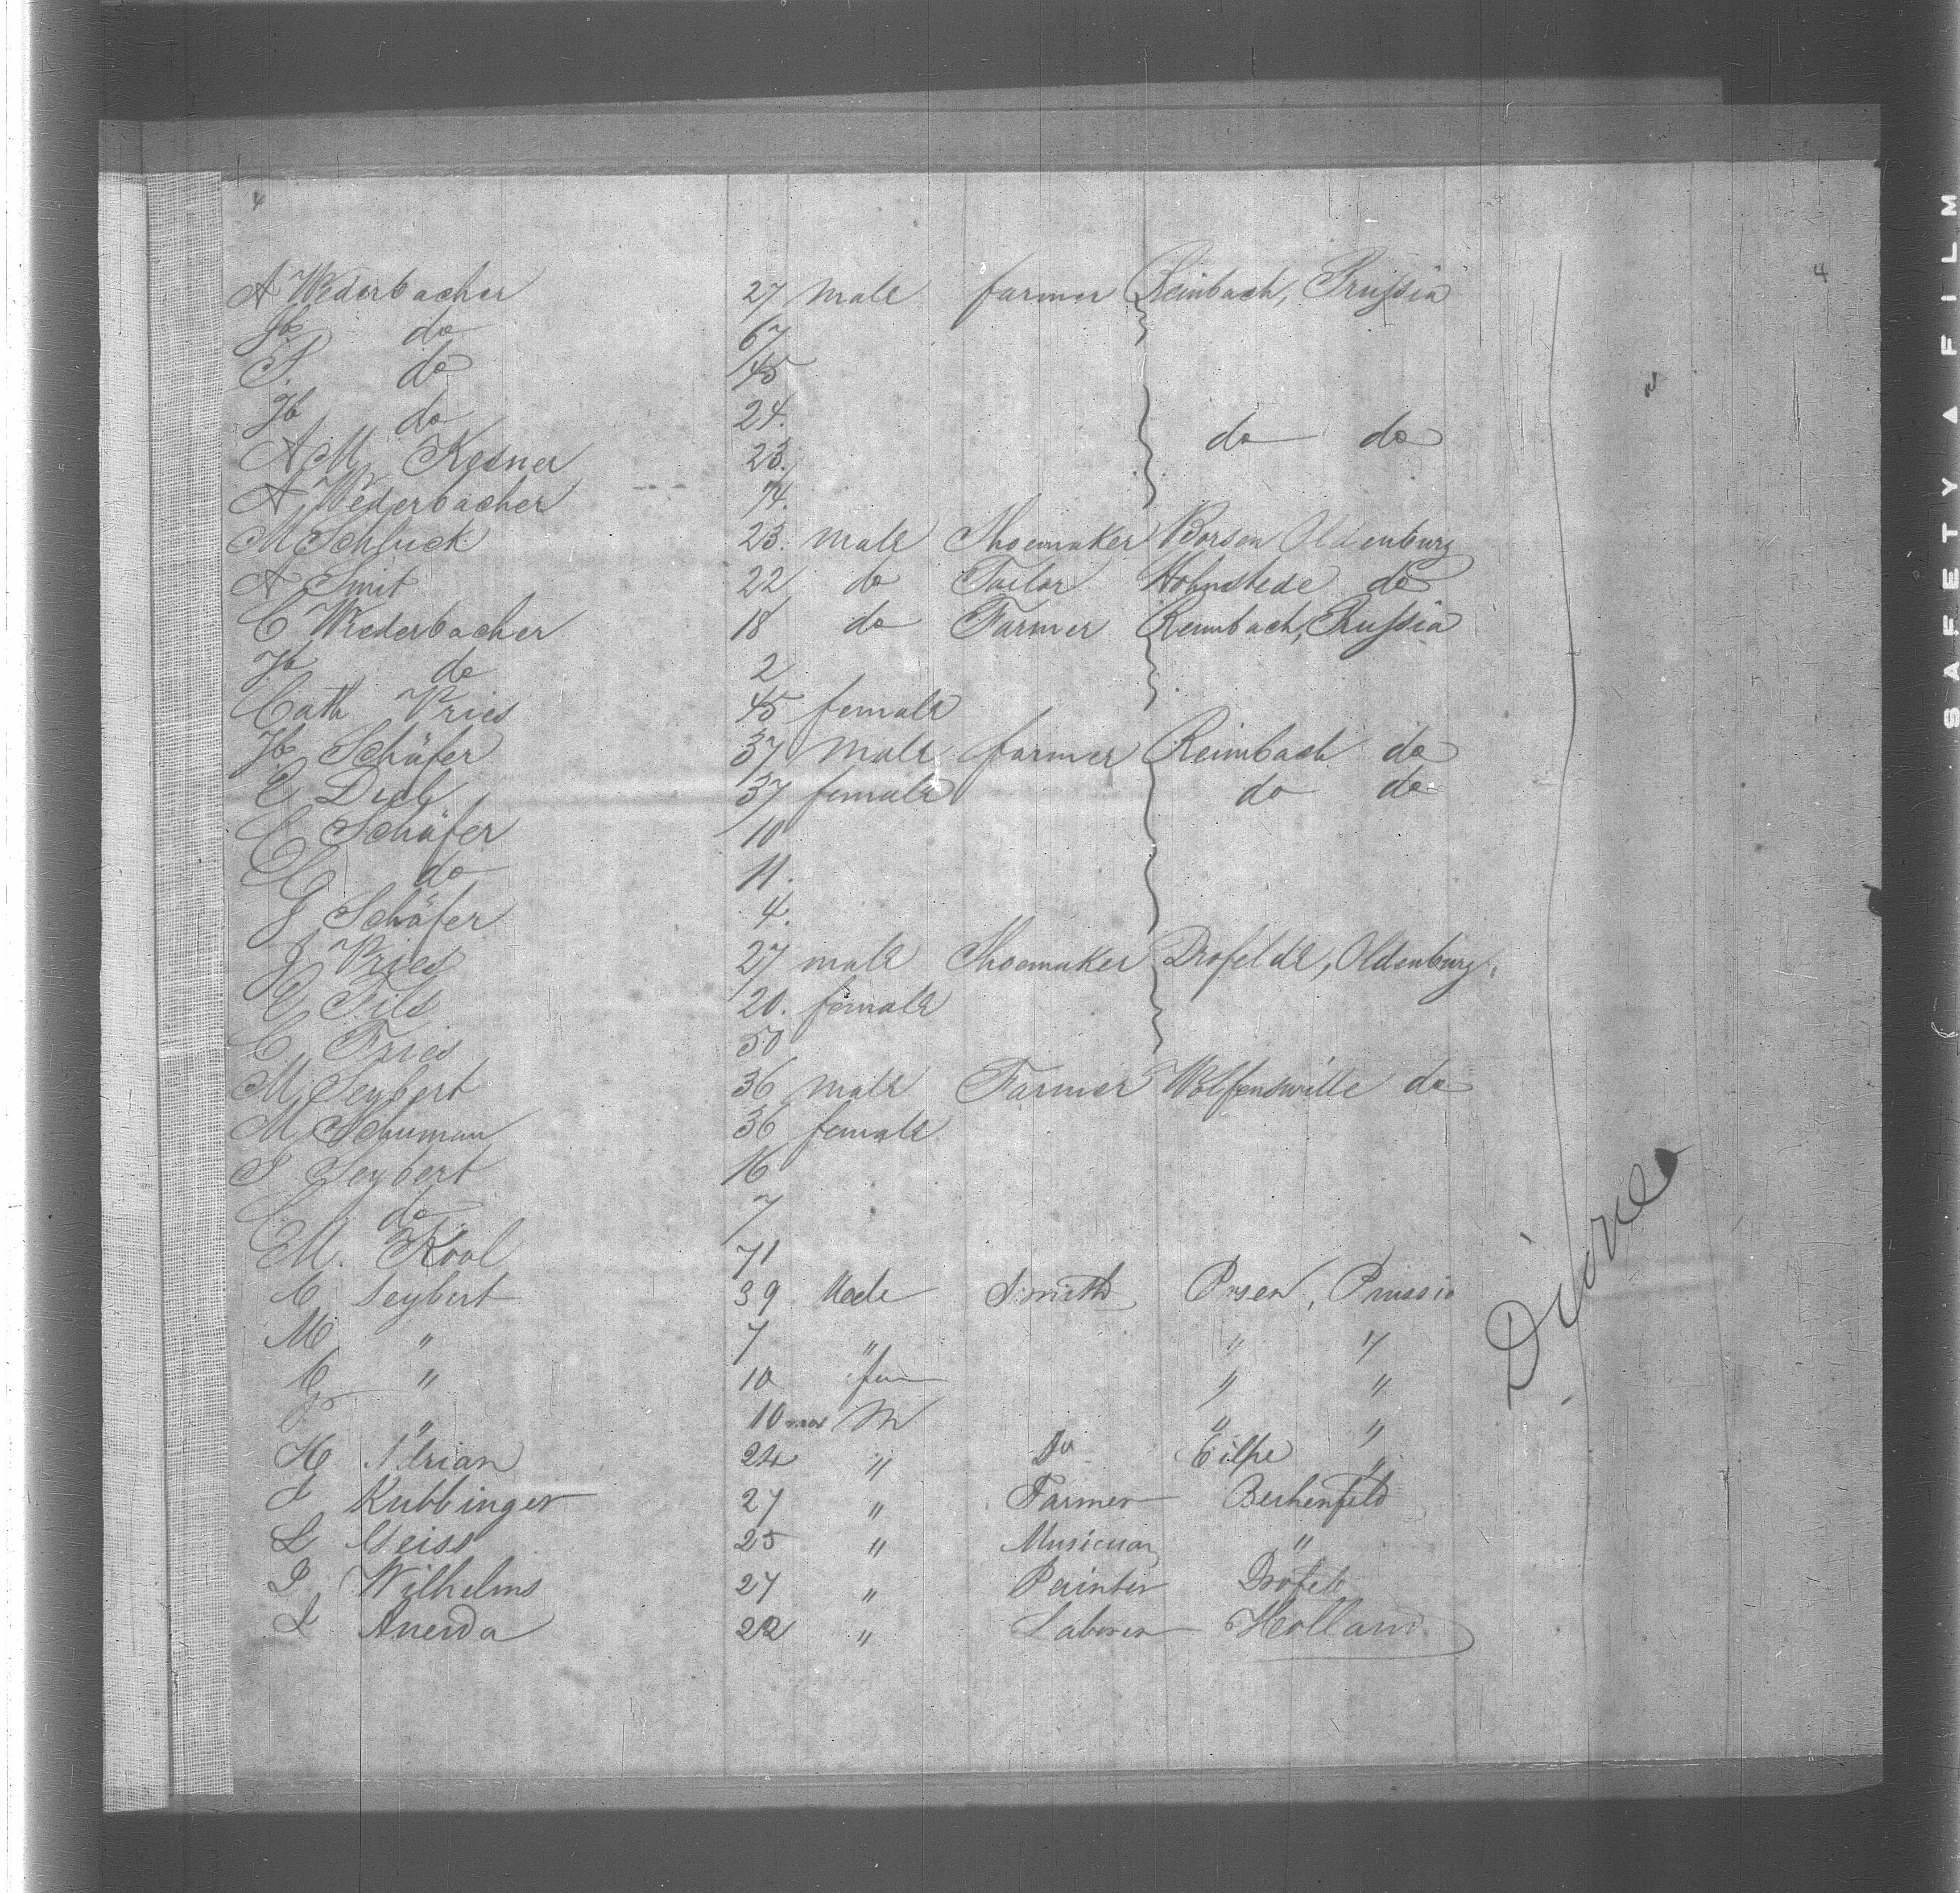 4
A Wederbacher 27 male farmer Reinbach, Prussia
Jb do 67
S. do 45
Jb do 24.
do do
A M Kesner 23.
A Wederbacher 74.
M Schluck 23. male Shoemaker Borsen Oldenburg
A Smit 22 do Tailor Hohnstede do
C Wiederbacher 18 do Farmer Reimbach, Prussia
Jb do 2
Cath Vries 45 female
Jb Schäfer 37 male farmer Reimbach do
E Dieh 37 female do do
C Schäfer 10
C do 11.
J Schäfer 4.
J Vries 27 male Shoemaker Drofelde, Oldenburg.
E Tils 20. female
C. Fries 50
M Seybert 36 male Farmer Wolfenswille do
M Schuman 36 female
S Seybert 16
C do 7
M. Kool 71
C Seybert 39 Male Smith Posen, Prussia
M " 7 " " "
C " 10 fem " "
J " 10 mos M " "
H Adrian 24 " Do Eilpe "
J Kubbinger 27 " Farmer Berkenfeld
L Geiss 25 " Musician "
P Wilhelms 27 " Painter Drofeld
L Anerda 22 " Laborer Holland
SAFETY FILM